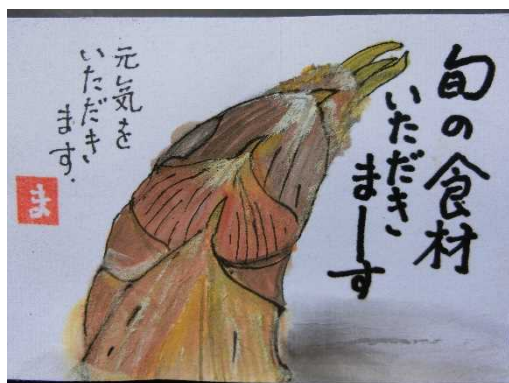 旬の食材
いただき
まーす
元気を
いただき
ます.
ま